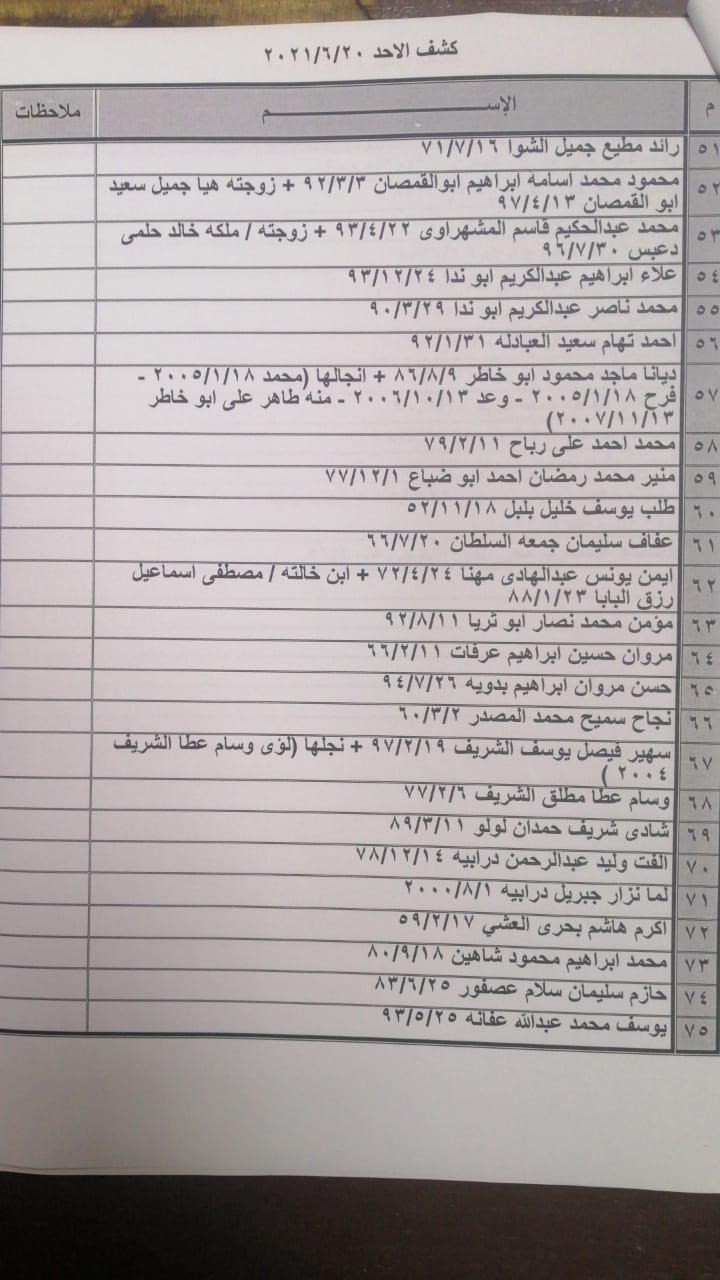 كشف الاحد ٢٠٢١/٦/٢٠
م الإســـــــــــم ملاحظات
٥١ رائد مطيع جميل الشوا ٧١/٧/١٦
٥٢ محمود محمد اسامه ابراهيم ابوالقمصان ٩٢/٣/٣ + زوجته هيا جميل سعيد
ابو القمصان ٩٧/٤/١٣
٥٣ محمد عبدالحكيم قاسم المشهراوى ٩٣/٤/٢٢ + زوجته / ملكه خالد حلمى
دعبس ٩٦/٧/٣٠
٥٤ علاء ابراهيم عبدالكريم ابو ندا ٩٣/١٢/٢٤
٥٥ محمد ناصر عبدالكريم ابو ندا ٩٠/٣/٢٩
٥٦ احمد تهام سعيد العبادله ٩٢/١/٣١
٥٧ ديانا ماجد محمود ابو خاطر ٨٦/٨/٩ + انجالها (محمد ٢٠٠٥/١/١٨ -
فرح ٢٠٠٥/١/١٨ - وعد ٢٠٠٦/١٠/١٣ - منه طاهر على ابو خاطر
٢٠٠٧/١١/١٣)
٥٨ محمد احمد على رباح ٧٩/٢/١١
٥٩ منير محمد رمضان احمد ابو ضباع ٧٧/١٢/١
٦٠ طلب يوسف خليل بلبل ٥٢/١١/١٨
٦١ عفاف سليمان جمعه السلطان ٦٦/٧/٢٠
٦٢ ايمن يونس عبدالهادى مهنا ٧٢/٤/٢٤ + ابن خالته / مصطفى اسماعيل
رزق البابا ٨٨/١/٢٣
٦٣ مؤمن محمد نصار ابو ثريا ٩٢/٨/١١
٦٤ مروان حسين ابراهيم عرفات ٦٦/٢/١١
٦٥ حسن مروان ابراهيم بدويه ٩٤/٧/٢٦
٦٦ نجاح سميح محمد المصدر ٦٠/٣/٢
٦٧ سهير فيصل يوسف الشريف ٩٧/٢/١٩ + نجلها (لؤى وسام عطا الشريف
٢٠٠٤ )
٦٨ وسام عطا مطلق الشريف ٧٧/٢/٦
٦٩ شادى شريف حمدان لولو ٨٩/٣/١١
٧٠ الفت وليد عبدالرحمن درابيه ٧٨/١٢/١٤
٧١ لما نزار جبريل درابيه ٢٠٠٠/٨/١
٧٢ اكرم هاشم بحرى العشي ٥٩/٢/١٧
٧٣ محمد ابراهيم محمود شاهين ٨٠/٩/١٨
٧٤ حازم سليمان سلام عصفور ٨٣/٦/٢٥
٧٥ يوسف محمد عبدالله عفانه ٩٣/٥/٢٥